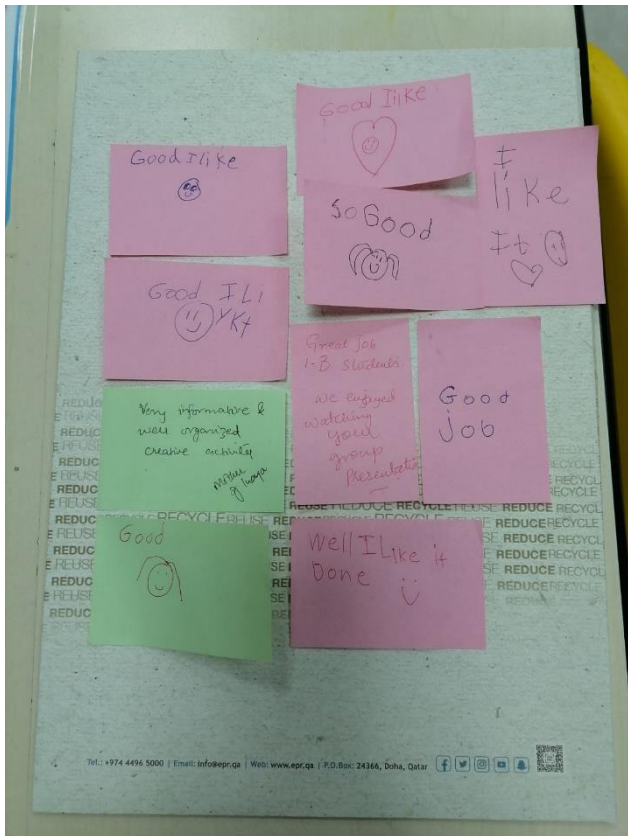 Good I like
Good Iilke
So Good
I
like
It
Good I Li
Great job
1-B students
we enjoyed
watching
your
group
Presentation
Good
job
Very informative &
well organized
creative activity
mother
of Inaya
Good
Well I Like it
Done
REDUCE REUSE RECYCLE
Tel.: +974 4496 5000 | Email: info@epr.qa | Web: www.epr.qa | P.O.Box: 24366, Doha, Qatar